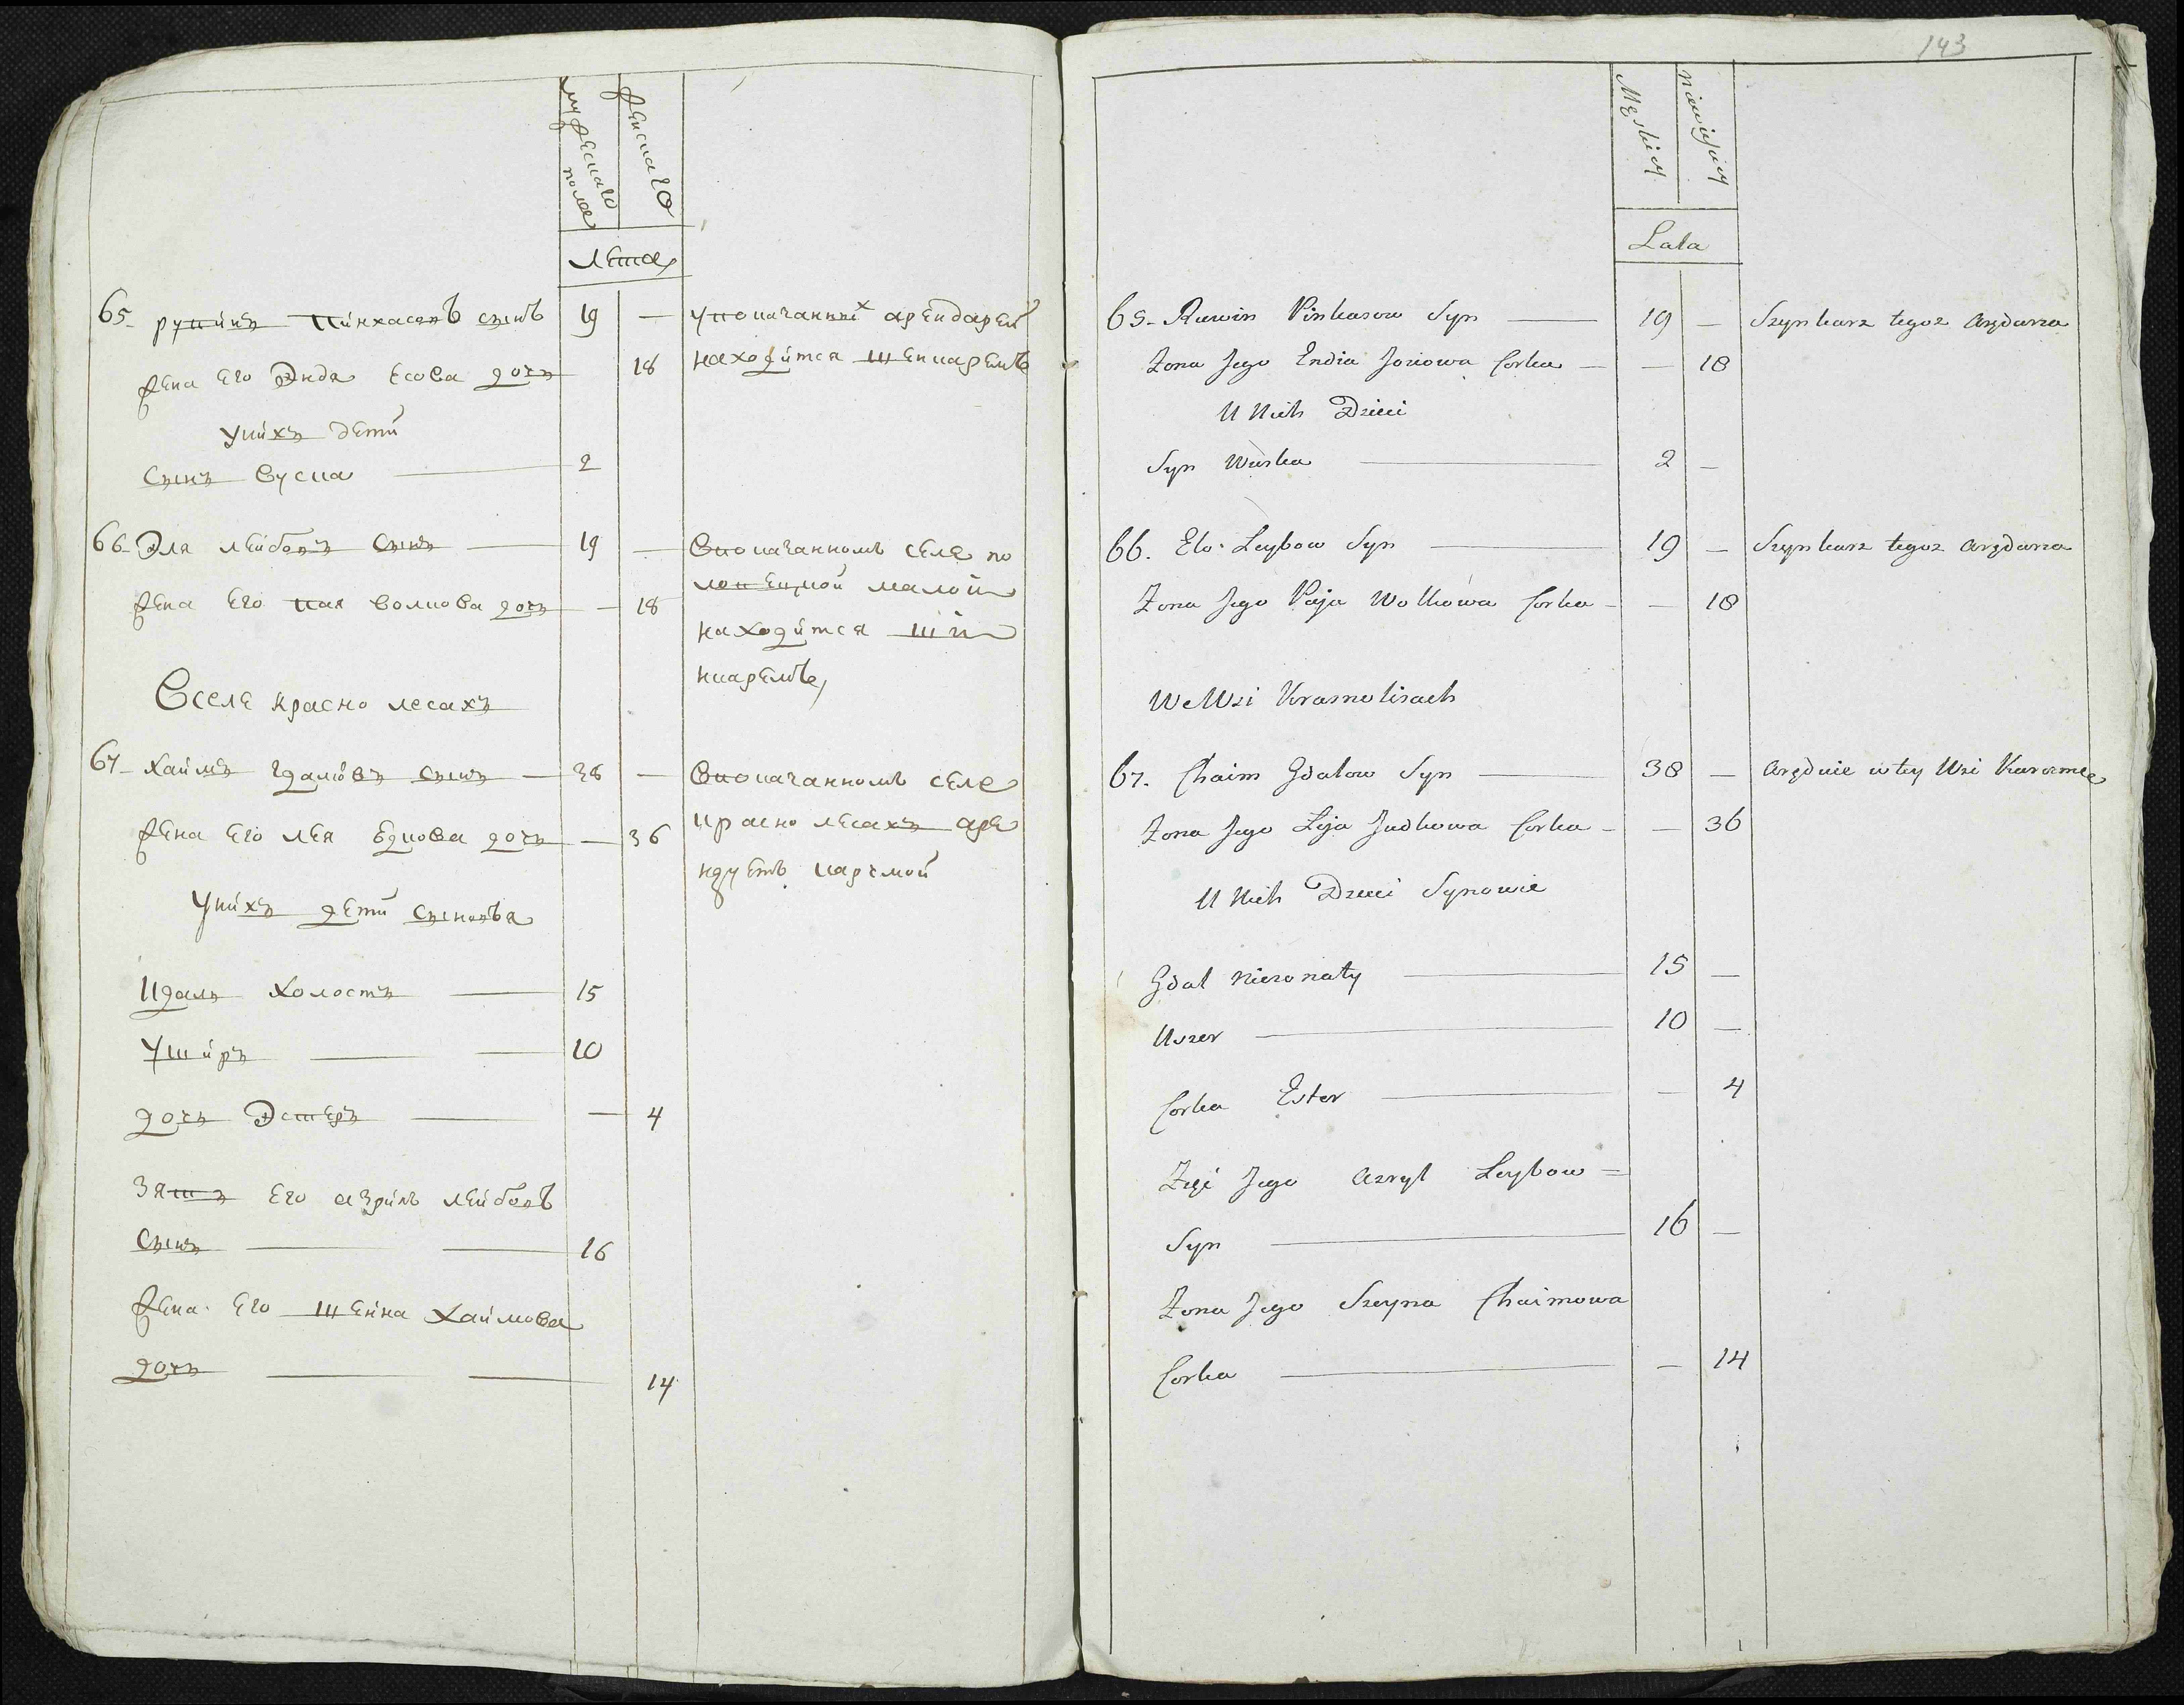 мужеска
полое
женска го
лета
65 рувинъ пинхасовъ сынъ 19 — упоказанных арендарей
жена его Энда Есова дочь 18 находится шенкаремъ
униxъ дети
сынъ Вуска 2
66 Эля лейбовъ сынъ 19 — Впоказанномъ селе по
жена его пая волкова дочь — 18
малой
находится ший
нкаремъ
Вселе красно лесахъ
67 хаимъ гдалювъ сынъ — 38 — Впоказанномъ селе
жена его лея Едкова дочь — 36 красно лесахъ аре
ндуетъ карчмой
униxъ дети сыновья
Идаль холостъ 15
Уширъ 10
дочь Эстеръ — 4
зять его азриль лейбовъ
сынъ 16
жена его шейна хаимова
дочь 14
143
Męskiey
niewieskiey
Lata
65 Ruwin Pinkasow Syn 19 — Szynkarz tegoz Arędarza
Zona Jego Endia Josiowa Corka — — 18
U Nich Dzieci
Syn Wuska 2 —
66. Elo Leybow Syn 19 — Szynkarz tegoz arędarza
Zona Jego Paja Wolkowa Corka — — 18
We Wsi Krasnolisach
67. Chaim Gdalow Syn 38 — Aręduie w tey Wsi Karczmę
Zona Jego Leja Judkowa Corka — — 36
U Nich Dzieci Synowie
Gdal niezonaty 15 —
Uszer 10 —
Corka Ester — 4
Zięć Jego Azryl Leybow =
Syn 16 —
Zona Jego Szeyna Chaimowa
Corka — 14